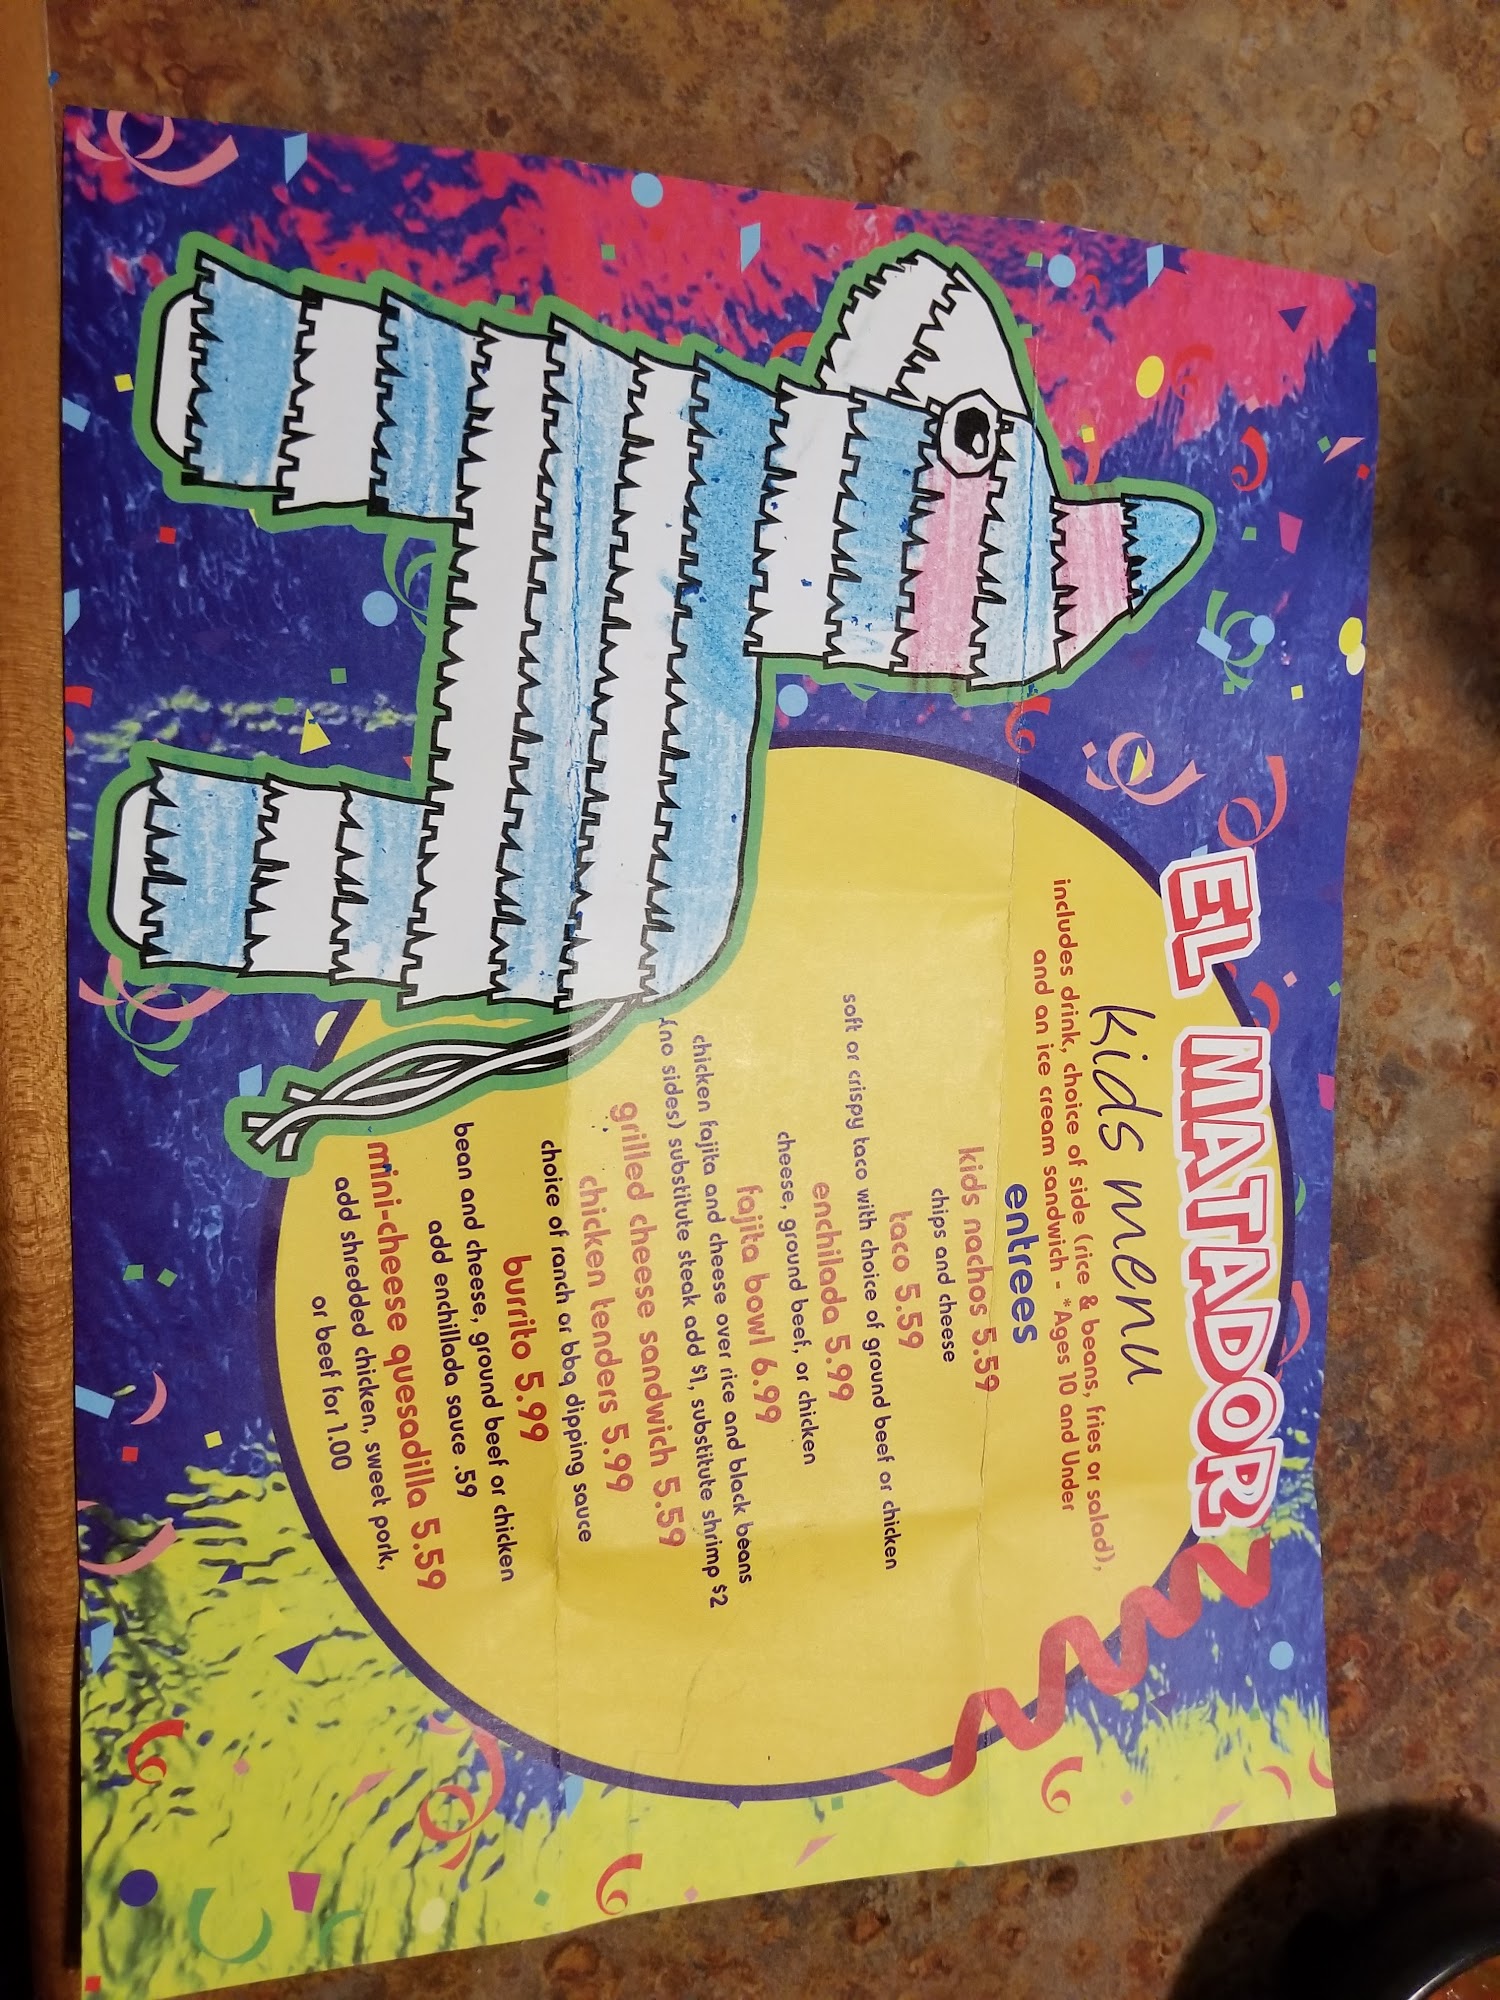 EL MATADOR
kids menu
includes drink, choice of side (rice & beans, fries or salad),
and an ice cream sandwich - *Ages 10 and Under
entrees
kids nachos 5.59
chips and cheese
taco 5.59
soft or crispy taco with choice of ground beef or chicken
enchilada 5.99
cheese, ground beef, or chicken
fajita bowl 6.99
chicken fajita and cheese over rice and black beans
(no sides) substitute steak add $1, substitute shrimp $2
grilled cheese sandwich 5.59
chicken tenders 5.99
choice of ranch or bbq dipping sauce
burrito 5.99
bean and cheese, ground beef or chicken
add enchillada sauce .59
mini-cheese quesadilla 5.59
add shredded chicken, sweet pork,
or beef for 1.00